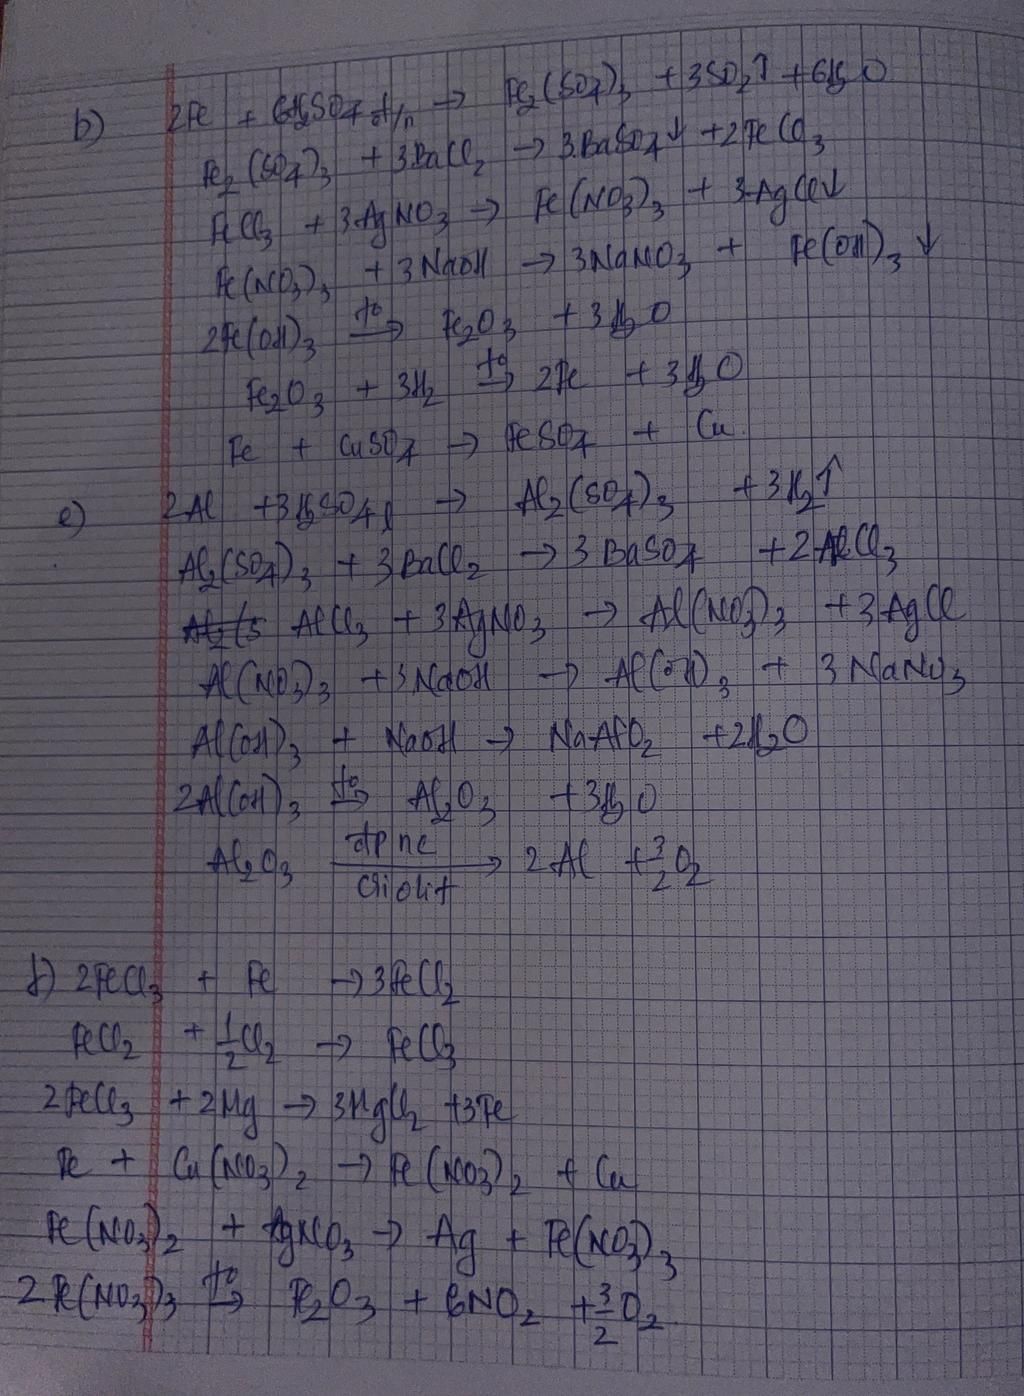 b) 2Fe + 6H2SO4 đ/n → Fe2(SO4)3 + 3SO2↑ + 6H2O
Fe2(SO4)3 + 3BaCl2 → 3BaSO4↓ + 2FeCl3
FeCl3 + 3AgNO3 → Fe(NO3)3 + 3AgCl↓
Fe(NO3)3 + 3NaOH → 3NaNO3 + Fe(OH)3↓
2Fe(OH)3 →(to) Fe2O3 + 3H2O
Fe2O3 + 3H2 →(to) 2Fe + 3H2O
Fe + CuSO4 → FeSO4 + Cu
e) 2Al + 3H2SO4 l → Al2(SO4)3 + 3H2↑
Al2(SO4)3 + 3BaCl2 → 3BaSO4 + 2AlCl3
AlCl3 + 3AgNO3 → Al(NO3)3 + 3AgCl
Al(NO3)3 + 3NaOH → Al(OH)3 + 3NaNO3
Al(OH)3 + NaOH → NaAlO2 + 2H2O
2Al(OH)3 →(to) Al2O3 + 3H2O
Al2O3 →(đpnc criolit) 2Al + 3/2O2
f) 2FeCl3 + Fe → 3FeCl2
FeCl2 + 1/2Cl2 → FeCl3
2FeCl3 + 2Mg → 3MgCl2 + 3Fe
Fe + Cu(NO3)2 → Fe(NO3)2 + Cu
Fe(NO3)2 + AgNO3 → Ag + Fe(NO3)3
2Fe(NO3)3 →(to) Fe2O3 + 6NO2 + 3/2O2